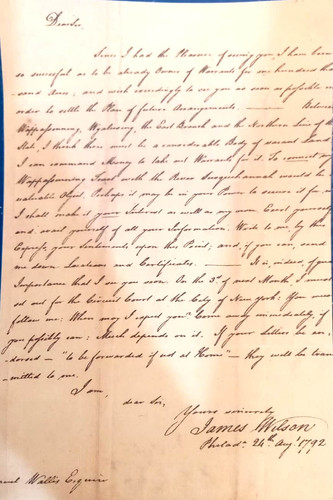 Dear Sir,
Since I had the Pleasure of seeing you I have been
so successful as to be already Owner of Warrants for one hundred thou-
sand Acres, and wish exceedingly to see you as soon as possible in
order to settle the Plan of future Arrangements. — Between
Wappasenning, Wyalusing, the East Branch and the Northern Line of the
State, I think there must be a considerable Body of vacant Land.
I can command Money to take out Warrants for it. To connect
Wappasenning Tract with the River Susquehannah would be
valuable Object. Perhaps it may be in your Power to secure it for
I shall make it your Interest as well as my own. Exert yourself
and avail yourself of all your Information. Write to me, by this
Express, your Sentiments upon this Point; and, if you can, send
me down Locations and Certificates. — It is indeed, of great
Importance that I see you soon. On the 3d. of next Month, I must
set out for the Circuit Court at the City of New York. You must
follow me. When may I expect you? Come away immediately, if
you possibly can: Much depends on it. If your Letters be en-
dorsed — "to be forwarded if not at Home" — they will be trans-
mitted to me.
I am,
dear Sir,
Yours sincerely
James Wilson
Philada. 24th. Augt. 1792
Wallis Esquire